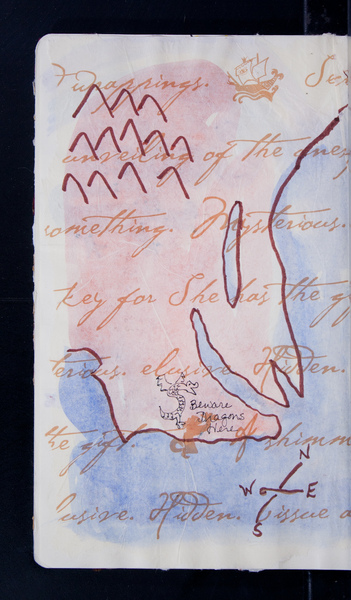 wrappings.
unveiling of the ones,
something. Mysterious.
key for She has the
elusive Hidden.
Beware
Dragons
Here
the gift. of shimm
N
W E
S
lusive. Hidden. tissue a